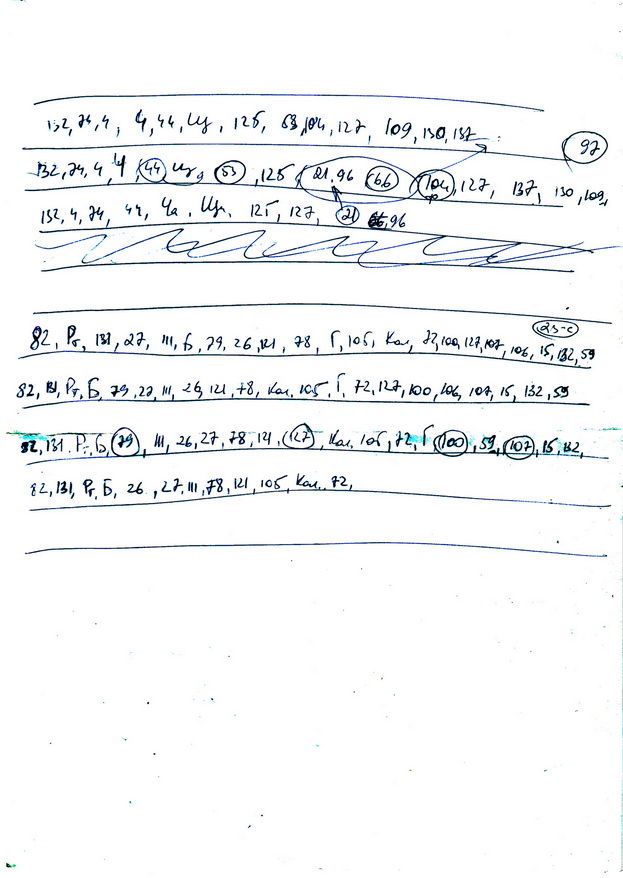 132, 74, 4, 4, 44, Иу, 125, 53, 104, 127, 109, 130, 137
97
132, 74, 4, 4, 44 Иу, 53, 125, 21, 96 66 104, 127, 137, 130, 109,
132, 4, 74, 44, 4а, Иу. 125, 127, 21 96
23-с
82, Рт, 131, 27, 111, Б, 79, 26, 121, 78, Г, 105, Кол, 72, 100, 127, 107, 106, 15, 132, 59
82, 131, Рт, Б, 79, 27, 111, 26, 121, 78, Кол. 105, Г, 72, 127, 100, 106, 107, 15, 132, 59
82, 131, Рт, Б, 79, 111, 26, 27, 78, 121, 127, Кол, 105, 72, Г 100, 59, 107, 15, 132,
82, 131, Рт, Б, 26, 27, 111, 78, 121, 105, Кол. 72,